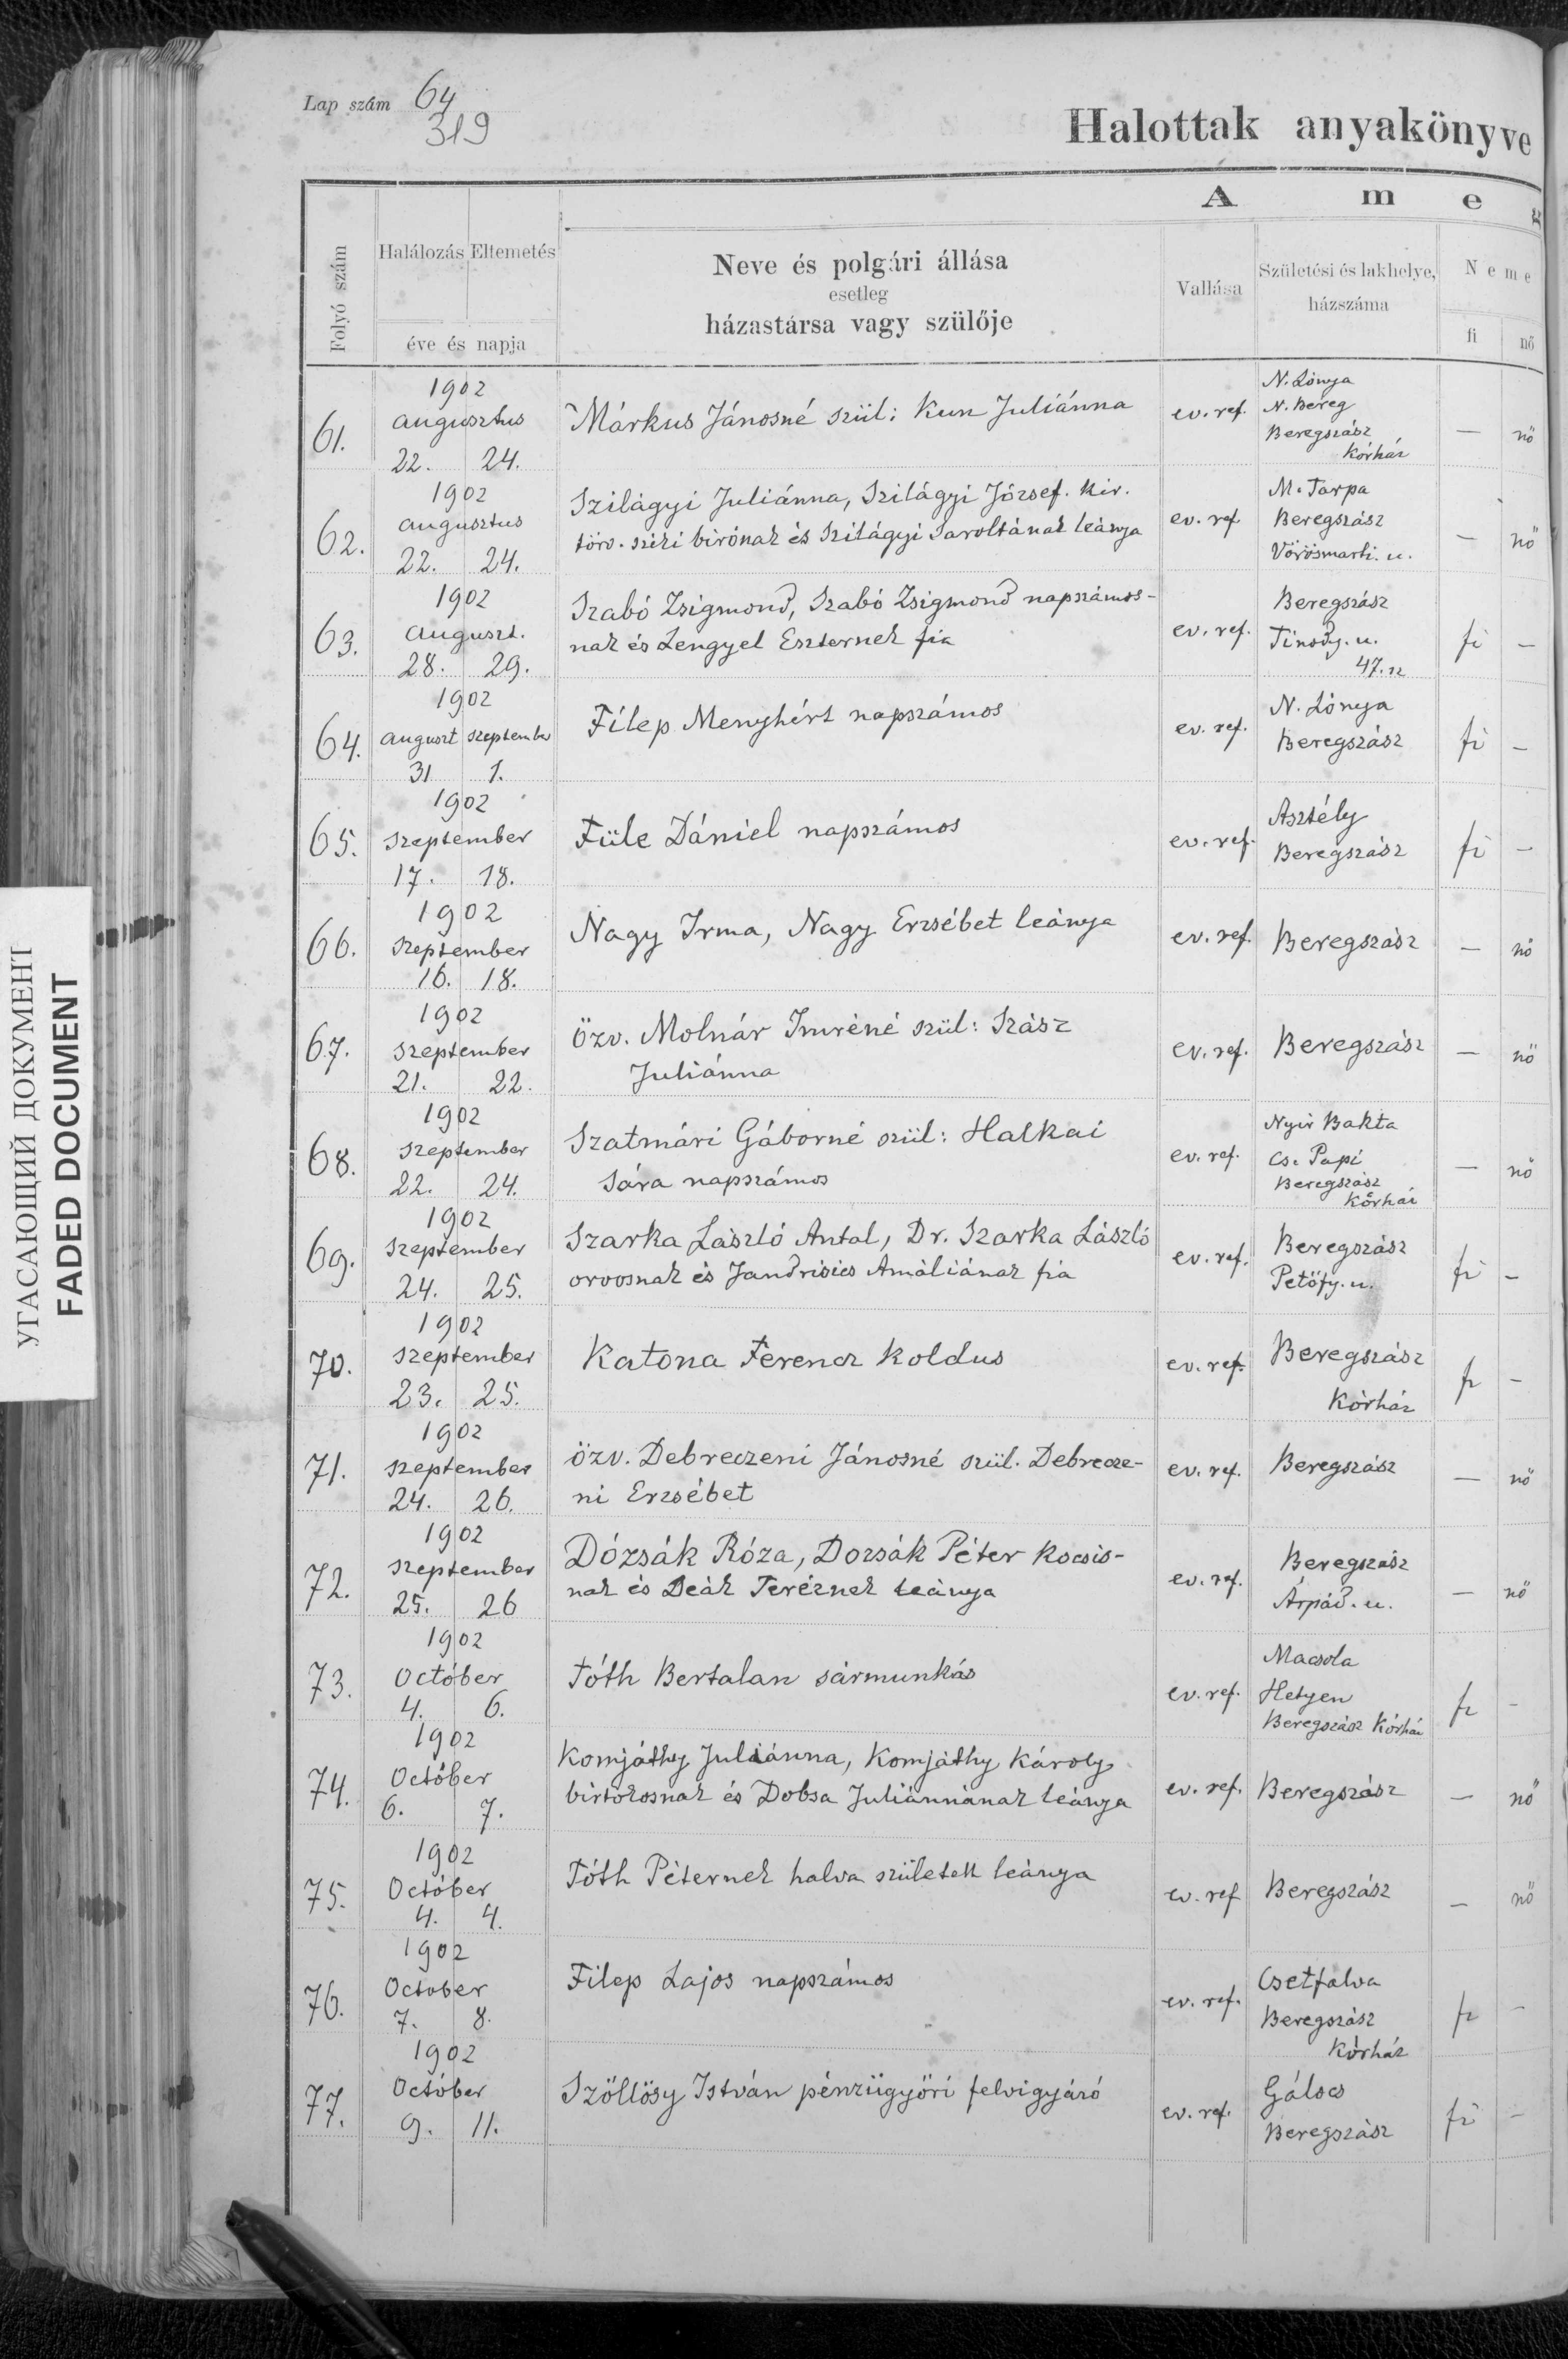 Lap szám 64
319
Halottak anyakönyve
A m e g
Folyó szám
Halálozás Eltemetés
éve és napja
Neve és polgári állása
esetleg
házastársa vagy szülője
Vallása
Születési és lakhelye,
házszáma
Neme
fi nő
61.
1902
augusztus
22. 24.
Márkus Jánosné szül: Kun Juliánna
ev. ref.
N. Lónya
N. Bereg
Beregszász
Kórház
— nő
62.
1902
augusztus
22. 24.
Szilágyi Juliánna, Szilágyi József. kir.
törv. széki birónak és Szilágyi Saroltának leánya
ev. ref
M. Tarpa
Beregszász
Vörösmarti. u.
— nő
63.
1902
auguszt.
28. 29.
Szabó Zsigmond, Szabó Zsigmond napszámos-
nak és Lengyel Eszternek fia
ev. ref.
Beregszász
Tinódy. u.
47. sz
fi —
64.
1902
auguszt szeptember
31 1.
Filep Menyhért napszámos
ev. ref.
N. Lónya
Beregszász
fi —
65.
1902
szeptember
17. 18.
Füle Dániel napszámos
ev. ref.
Asztély
Beregszász
fi —
66.
1902
szeptember
16. 18.
Nagy Irma, Nagy Erzsébet leánya
ev. ref.
Beregszász
— nő
67.
1902
szeptember
21. 22.
Özv. Molnár Imréné szül: Szász
Juliánna
ev. ref.
Beregszász
— nő
68.
1902
szeptember
22. 24.
Szatmári Gáborné szül: Halkai
Sára napszámos
ev. ref.
Nyir Bakta
Cs. Papi
Beregszász
Kórház
— nő
69.
1902
szeptember
24. 25.
Szarka László Antal, Dr. Szarka László
orvosnak és Jandrisics Amáliának fia
ev. ref.
Beregszász
Petőfy. u.
fi —
70.
1902
szeptember
23. 25.
Katona Ferencz koldus
ev. ref.
Beregszász
Kórház
fi —
71.
1902
szeptember
24. 26.
özv. Debreczeni Jánosné szül. Debrecze-
ni Erzsébet
ev. ref.
Beregszász
— nő
72.
1902
szeptember
25. 26
Dózsák Róza, Dozsák Péter kocsis-
nak és Deák Teréznek leánya
ev. ref.
Beregszász
Árpád. u.
— nő
73.
1902
Octóber
4. 6.
Tóth Bertalan sármunkás
ev. ref.
Macsola
Hetyen
Beregszász Kórház
fi —
74.
1902
Octóber
6. 7.
Komjáthy Juliánna, Komjáthy Károly
birtokosnak és Dobsa Juliánnának leánya
ev. ref.
Beregszász
— nő
75.
1902
Octóber
4. 4.
Tóth Péternek halva született leánya
ev. ref
Beregszász
— nő
76.
1902
October
7. 8.
Filep Lajos napszámos
ev. ref.
Csetfalva
Beregszász
Kórház
fi —
77.
1902
Octóber
9. 11.
Szöllösy István pénzügyőri felvigyázó
ev. ref.
Gálocs
Beregszász
fi —
УГАСАЮЩИЙ ДОКУМЕНТ
FADED DOCUMENT